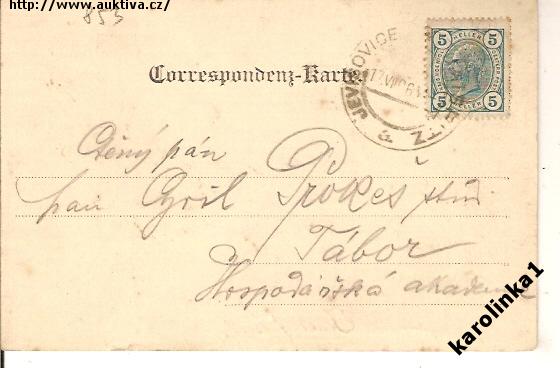 http://www.auktiva.cz/
853
Correspondenz-Karte
JEVIŠOVICE
5 HELLER 5
5 HELLER 5
Ctěný pán
pan Cyril Prokeš stud.
Tábor
Hospodářská akademie
karolinka1